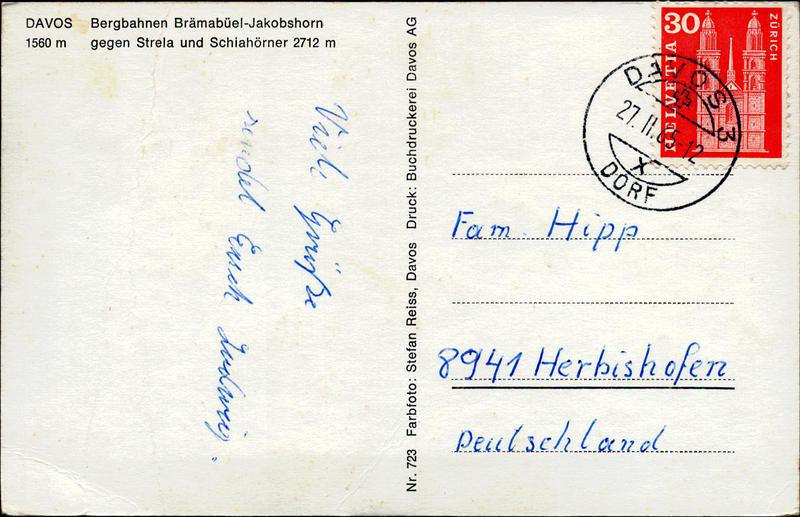 DAVOS Bergbahnen Brämabüel-Jakobshorn
1560 m gegen Strela und Schiahörner 2712 m
Viele Grüße
sendet Euch Ludwig
Nr. 723 Farbfoto: Stefan Reiss, Davos Druck: Buchdruckerei Davos AG
30
HELVETIA
ZÜRICH
DAVOS 3
27.II.65-12
X
DORF
Fam. Hipp
8941 Herbishofen
Deutschland